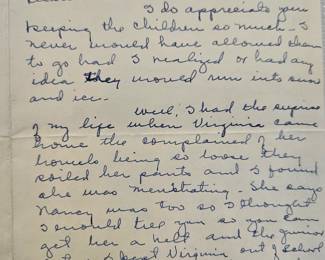 I do appreciate you
keeping the children so much - I
never would have allowed them
to go had I realized or had any
idea they would run into snow
and ice.
Well, I had the suprise
of my life when Virginia came
home she complained of her
bowels being so loose they
soiled her pants and I found
she was menstrating. She says
Nancy was too so I thought
I would tell you so you can
get her a belt and the junior
I kept Virginia out of school